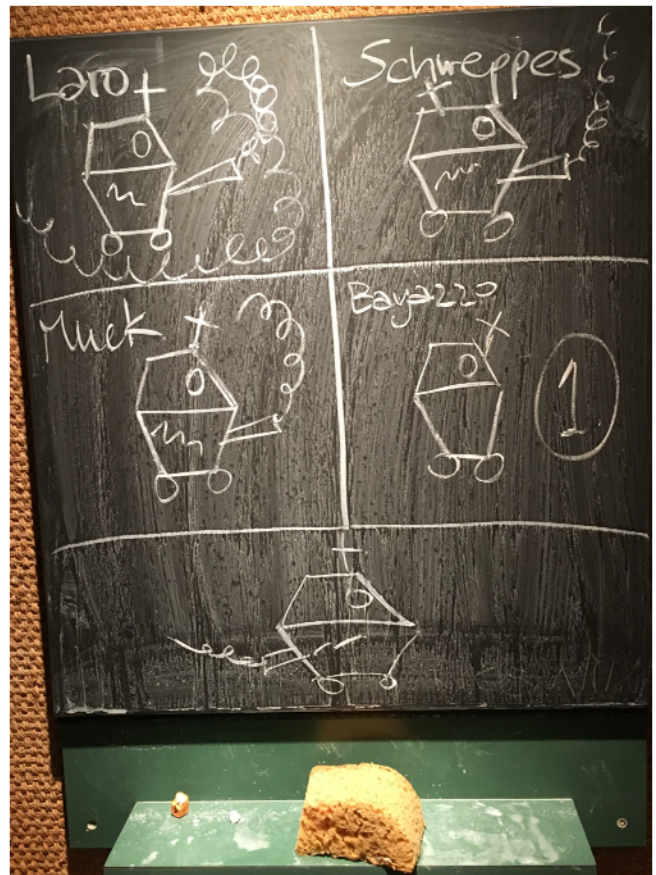 Laro
Schweppes
Muck
Bayazzo
1